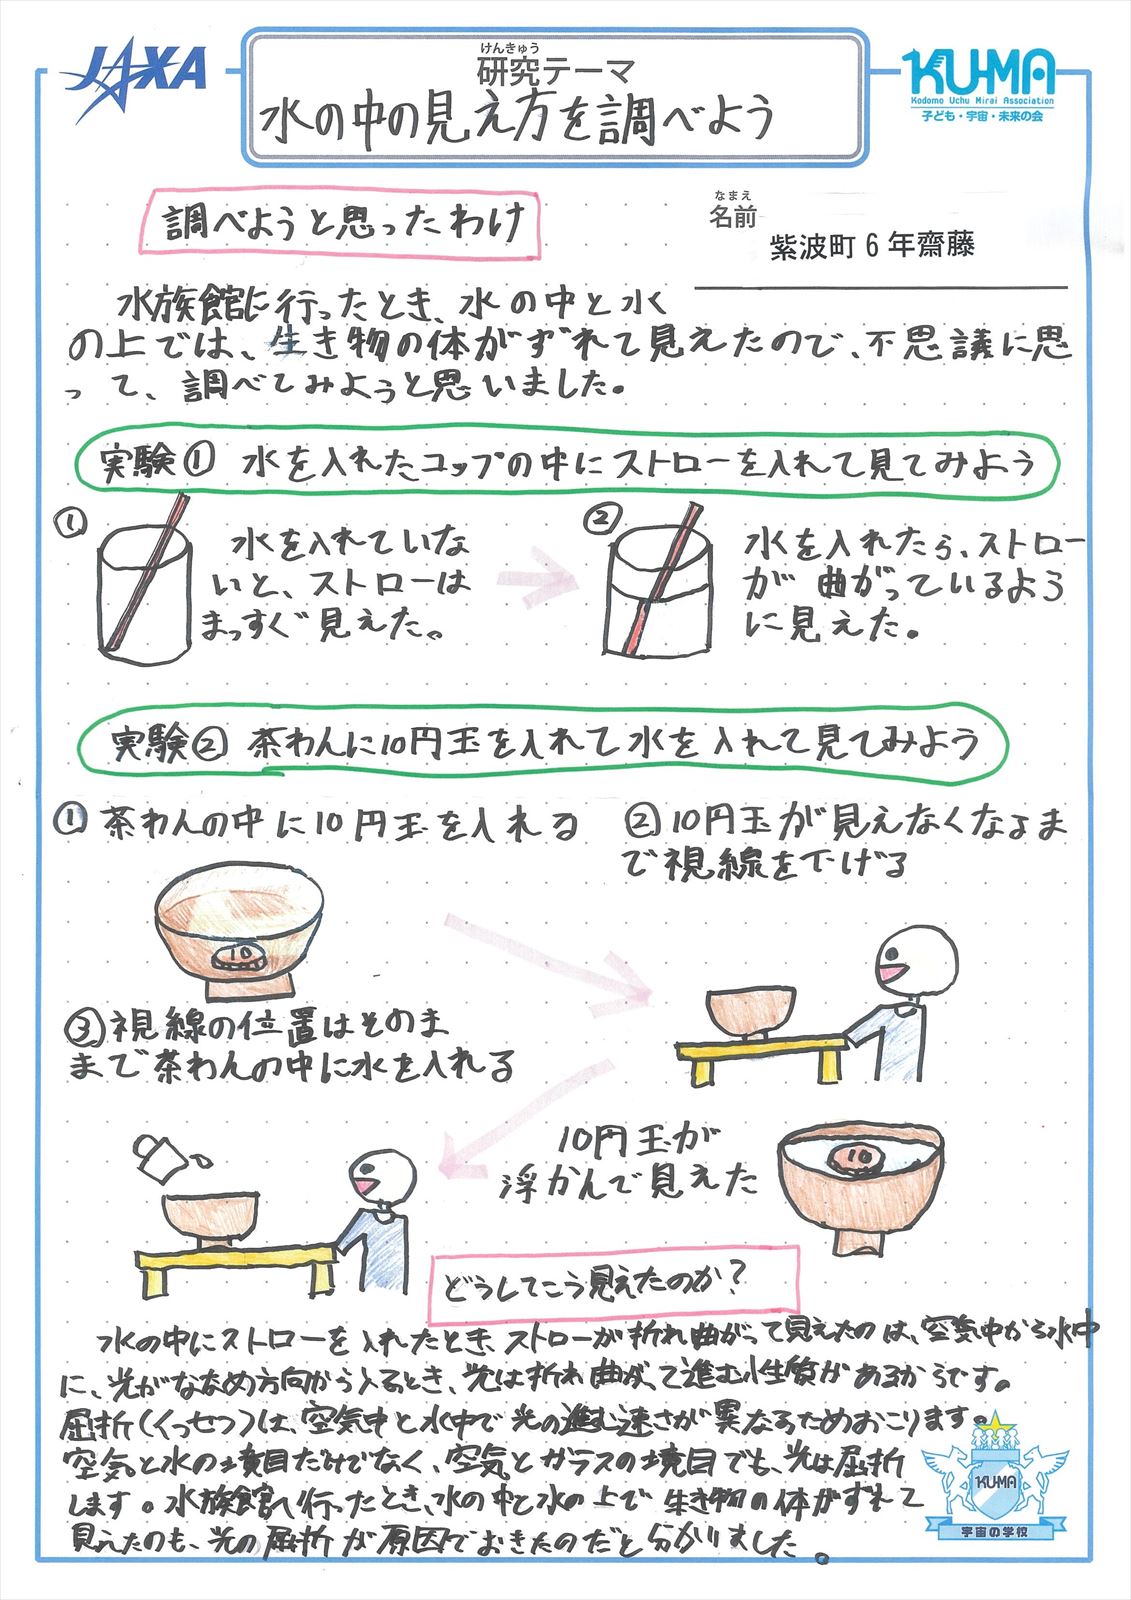 JAXA
けんきゅう
研究テーマ
水の中の見え方を調べよう
KU-MA
Kodomo Uchu Mirai Association
子ども・宇宙・未来の会
調べようと思ったわけ
なまえ
名前
紫波町6年齋藤
水族館に行ったとき、水の中と水
の上では、生き物の体がずれて見えたので、不思議に思
って、調べてみようと思いました。
実験① 水を入れたコップの中にストローを入れて見てみよう
①
水を入れていな
いと、ストローは
まっすぐ見えた。
②
水を入れたら、ストロー
が曲がっているよう
に見えた。
実験② 茶わんに10円玉を入れて水を入れて見てみよう
①茶わんの中に10円玉を入れる
②10円玉が見えなくなるま
で視線を下げる
10
③視線の位置はそのま
まで茶わんの中に水を入れる
10円玉が
浮かんで見えた
10
どうしてこう見えたのか?
水の中にストローを入れたとき、ストローが折れ曲がって見えたのは、空気中から水中
に、光がななめ方向から入るとき、光は折れ曲がって進む性質があるからです。
屈折(くっせつ)は、空気中と水中で光の進む速さが異なるためおこります。
空気と水の境目だけでなく、空気とガラスの境目でも、光は屈折
します。水族館へ行ったとき、水の中と水の上で生き物の体がずれて
見えたのも、光の屈折が原因でおきたのだと分かりました。
KU-MA
宇宙の学校